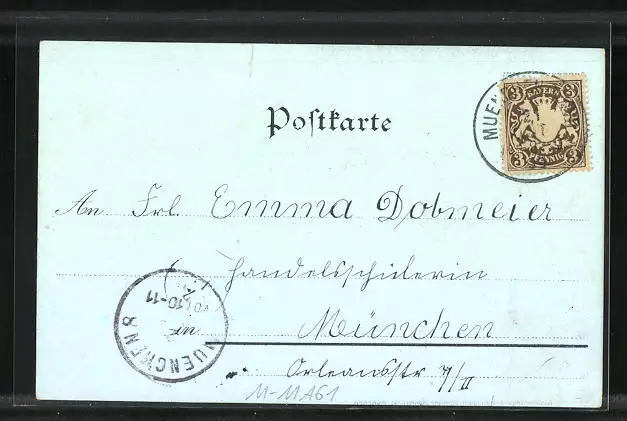 Postkarte
MUEN
3 BAYERN 3
3 PFENNIG 3
An Frl. Emma Dobmeier
Handelsschülerin
in München
Orleansstr 7/II
MUENCHEN 8
10-11
M-MA61